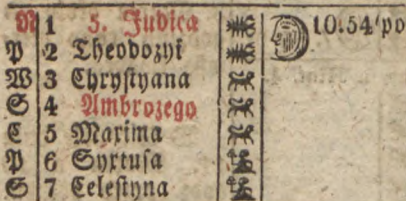 N 1 5. Judica 10.54 po
P 2 Theodozyi
W 3 Chrystyana
S 4 Ambrozego
C 5 Maxima
P 6 Syxtusa
S 7 Celestyna